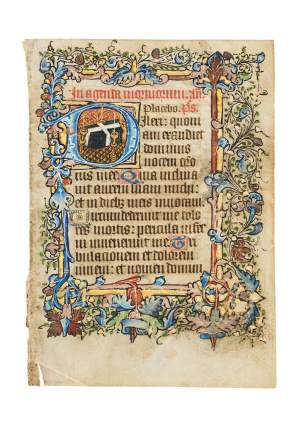 In agenda mortuorum. an̄
Placebo. Ps.
Dilexi: quoni
am exaudiet
dominus
vocem or̄o
nis mee. Quia inclina
vit aurem suam michi:
et in dieb; meis invocavi.
Circumdederunt me dolo
res mortis: pericula infer
ni invenerunt me. Tri
bulacionem et dolorem
inveni: et nomen domini